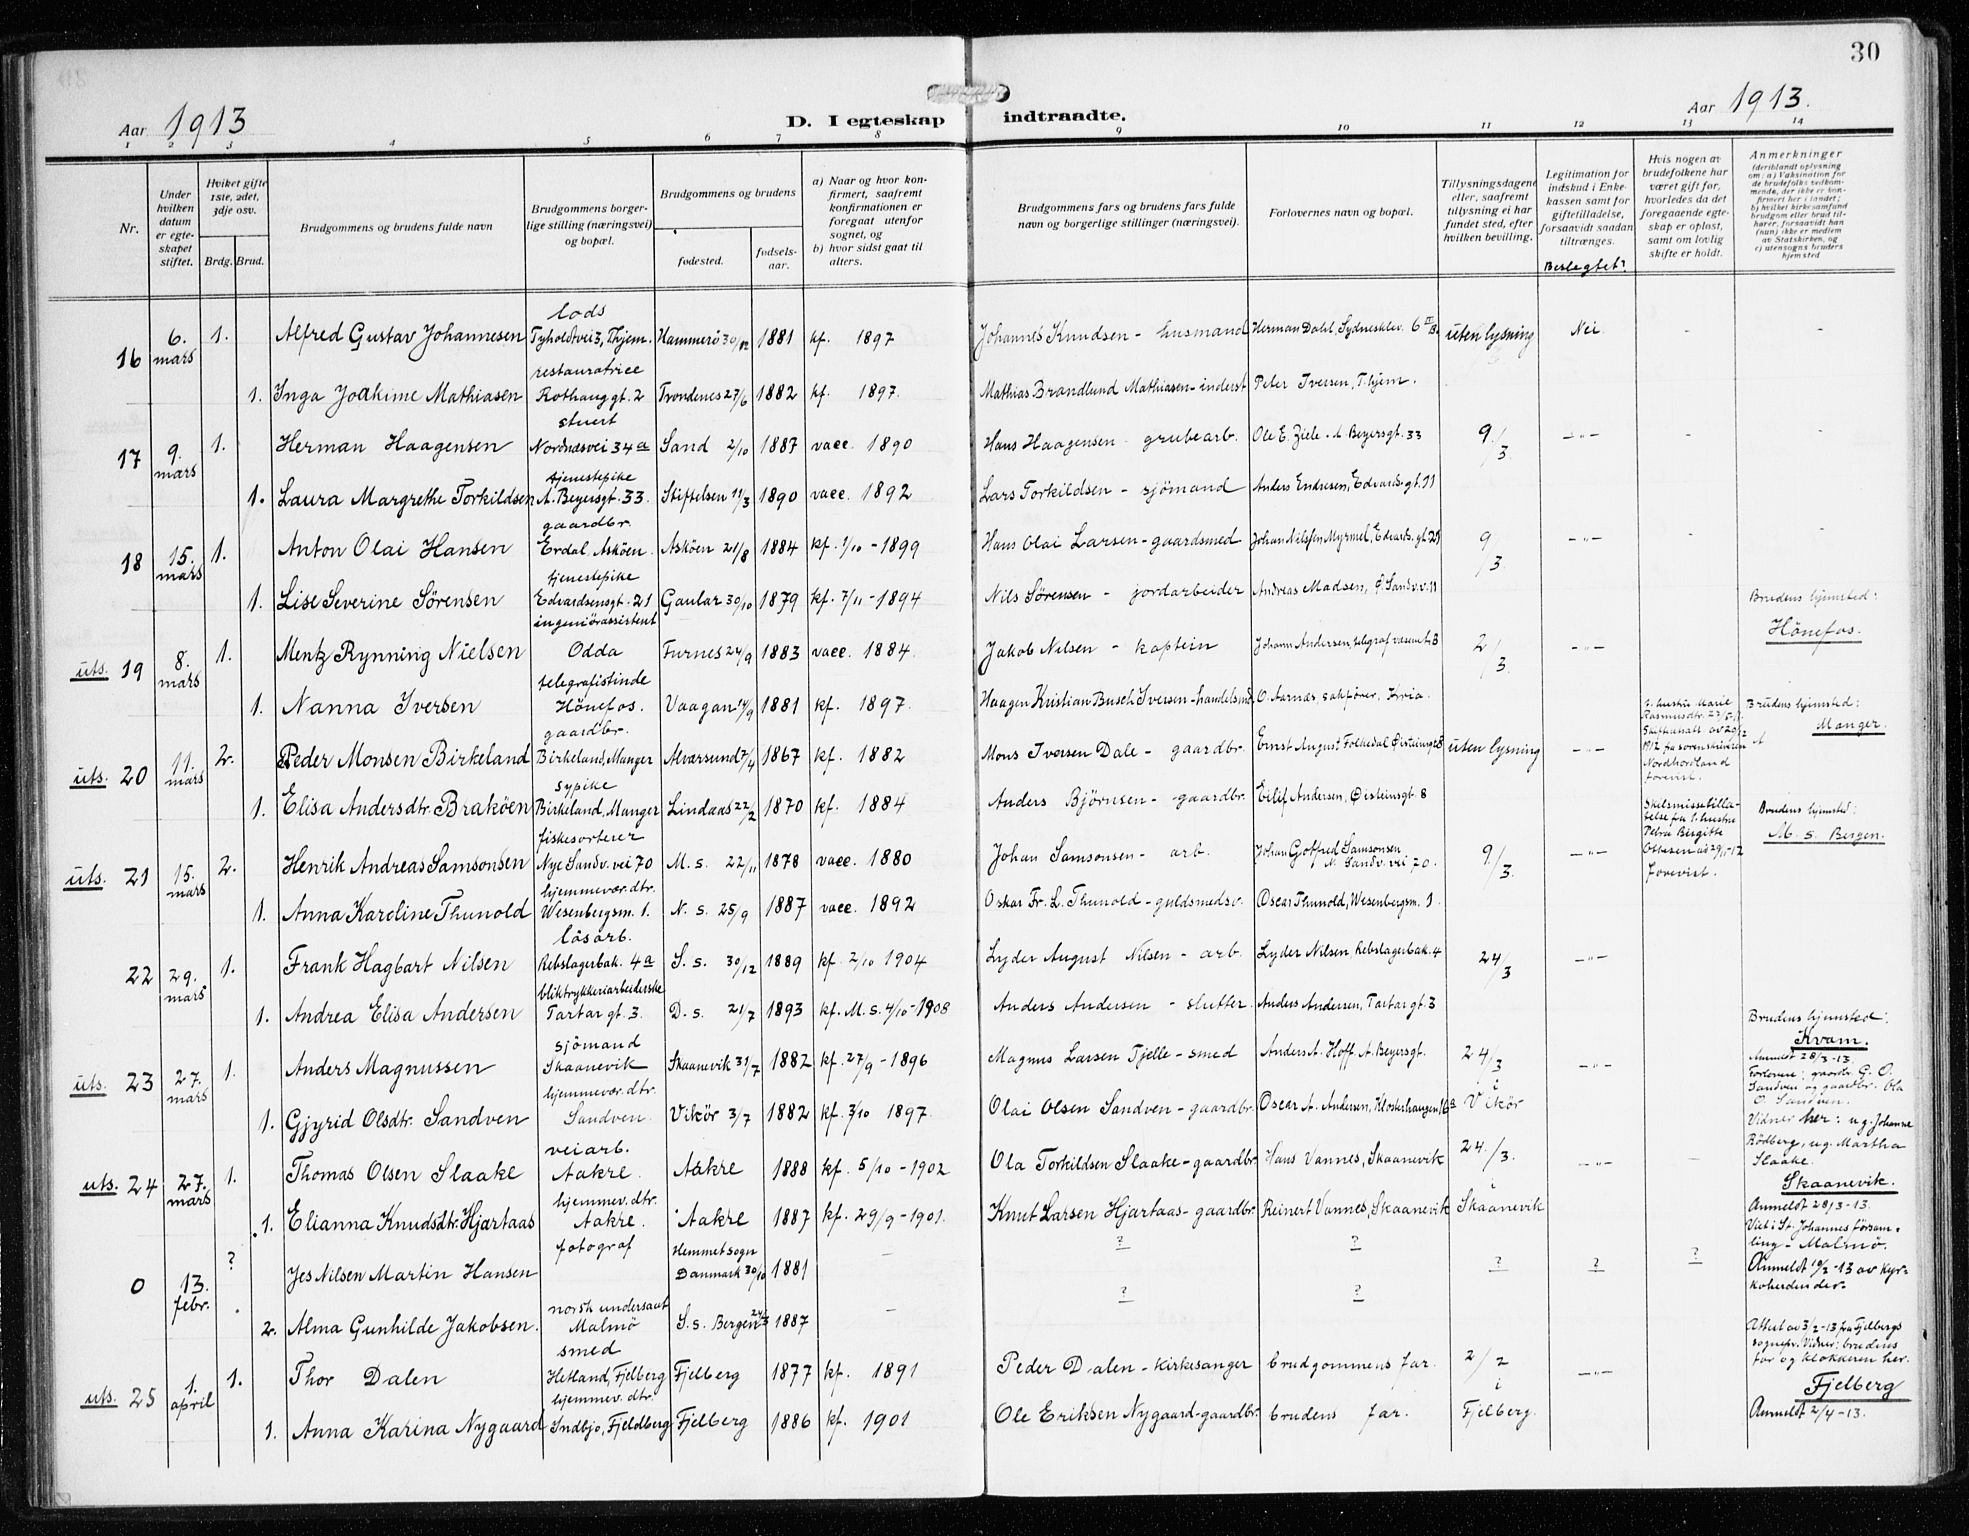 30
Aar 1913
D. I egteskap indtraadte.
Aar 1913.
1 2 3 4 5 6 7 8 9 10 11 12 13 14
Nr.
Under hvilken datum er egteskapet stiftet.
Hvilket gifte 1ste, 2det, 3dje osv.
Brdg. Brud.
Brudgommens og brudens fulde navn
Brudgommens borgerlige stilling (næringsvei) og bopæl.
Brudgommens og brudens
fødested.
fødselsaar.
a) Naar og hvor konfirmert, saafremt konfirmationen er foregaat utenfor sognet, og
b) hvor sidst gaat til alters.
Brudgommens fars og brudens fars fulde navn og borgerlige stillinger (næringsvei).
Forlovernes navn og bopæl.
Tillysningsdagene eller, saafremt tillysning ei har fundet sted, efter hvilken bevilling.
Legitimation for indskud i Enkekassen samt for giftetilladelse, forsaavidt saadan tiltrænges.
Beslegtet?
Hvis nogen av brudefolkene har været gift før, hvorledes da det foregaaende egteskap er opløst, samt om lovlig skifte er holdt.
Anmerkninger
(deriblandt oplysning om: a) Vaksination for de brudefolks vedkommende, der ikke er konfirmert her i landet; b) hvilket kirkesamfund brudgom eller brud tilhører, forsaavidt han (hun) ikke er medlem av Statskirken, og c) utensogns bruders hjemsted
16 6. mars 1. Alfred Gustav Johannesen lods Tyholdtvei 3, Thjem. Hammerö 30/12 1881 kf. 1897 Johannes Knudsen - husmand Herman Dahl, Sydnesklev. 6 uten lysning Nei. - -
1. Inga Joakime Mathiasen restauratrice Rothauggt. 2 Trondenes 27/6 1882 kf. 1897. Mathias Brandlund Mathiasen - inderst Peter Iversen, Thjem.
17 9. mars 1. Herman Haagensen stuert Nordnæsvei 34a Sand 2/10 1887 vacc. 1890 Hans Haagensen - grubearb. Ole E. Ziele - A. Beyersgt. 33 9/3 -"- - -
1. Laura Margrethe Torkildsen tjenestepike A. Beyersgt. 33. Stiftelsen 11/3 1890 vacc. 1892 Lars Torkildsen - sjömand Anders Endresen, Edvardsgt. 11
18 15. mars 1. Anton Olai Hansen gaardbr. Erdal, Asköen. Asköen 21/8 1884 kf. 1/10 - 1899 Hans Olai Larsen - gaardsmed Johan Nilssen Myrmel, Edvards. gt 21 9/3 -"- - -
1. Lise Severine Sørensen tjenestepike Edvardsensgt. 21 Gaular 30/10 1879 kf. 7/11 - 1894 Nils Sørensen - jordarbeider Andreas Madsen, G. Sandv.v. 11
uts. 19 8. mars 1. Mentz Rynning Nielsen ingeniörassistent Odda Furnes 24/9 1883 vacc. 1884. Jakob Nilsen - kaptein Johann Andersen, telegrafvæsenet 2/3 -"- Brudens hjemsted: Hönefos.
1. Nanna Iversen telegrafistinde Hönefos. Vaagan 14/9 1881 kf. 1897. Haagen Kristian Busch Iversen - handelsmd. O. Aarnæs, sakförer,
uts. 20 11. mars 2. Peder Monsen Birkeland gaardbr. Birkeland, Manger Alværsund 7/4 1867 kf. 1882 Mons Iversen Dale - gaardbr. Ernst August Folkedal Øisteinsgt 8 uten lysning -"- 1. hustru Marie Rasmusdtr. Skifteatt. av 1912 fra sorenskriveren Nordhordland forevist. Brudens hjemsted: Manger.
1. Elisa Andersdtr. Braköen sypike Birkeland, Manger Lindaas 22/2 1870 kf. 1884 Anders Björnsen - gaardbr. Eilif Andersen, Øisteinsgt. 8
uts. 21 15. mars 2. Henrik Andreas Samsonsen fiskesorterer Nye Sandv. vei 70 M. s. 22/11 1878 vacc. 1880 Johan Samsonsen - arb. Johan Gotfred Samsonsen N. Sandv. vei 70. 9/3. -"- Skilsmissetilladelse fra 1. hustru Petra Birgitte forevist. Brudens hjemsted: M. s. Bergen.
1. Anna Karoline Thunold hjemmevær. dtr. Wesenbergsm. 1. N. s. 25/9 1887 vacc. 1892 Oskar Fr. L. Thunold - guldsmedsv. Oscar Thunold, Wesenbergsm. 1.
22 29. mars 1. Frank Hagbart Nilsen lösarb. Rebslagerbak. 4a S. s. 30/12 1889 kf. 2/10 1904 Lyder August Nilsen - arb. Lyder Nilsen Rebslagerbak. 4 24/3 -"-
1. Andrea Elisa Andersen bliktrykkeriarbeiderske Tartargt. 3. D. s. 21/7 1893 kf. M. s. 4/10 - 1908 Anders Andersen - slutter. Anders Andersen, Tartargt. 3
uts. 23 27. mars 1. Anders Magnussen sjömand Skaanevik Skaanevik 31/7 1882 kf. 27/9 - 1896 Magnus Larsen Tjelle - smed Anders A. Hoff, A. Beyersgt. 24/3 i Vikör -"- Brudens hjemsted: Kvam. Anmeldt 28/3-13. Forlovere: gaardbr. G. O. Sandven og gaardbr. Ola O. Sandven.
1. Gjyrid Olsdtr. Sandven hjemmevær. dtr. Sandven. Vikör 3/7 1882 kf. 3/10 1897. Olai Olsen Sandven - gaardbr. Oscar A. Andersen, Klosterhaugen 16a
uts. 24 27. mars 1. Thomas Olsen Slaake veiarb. Aakre. Aakre 1888 kf. 5/10 - 1902 Ola Torkildsen Slaake - gaardbr. Hans Vannes, Skaanevik 24./3. i Skaanevik -"- - Vidner her: ug. Johanne Rödberg, ug. Martha Slaake. Skaanevik. Anmeldt 28/3-13.
1. Elianna Knudsdtr. Hjartaas hjemmev. dtr. Aakre. Aakre 1887 kf. 29/9 - 1901. Knut Larsen Hjartaas - gaardbr. Reinert Vannes, Skaanevik
0 13. febr. ? Jes Nilsen Martin Hansen fotograf Hemmet sogn Danmark 30/10 1881 - ? ? ? ? ? Viet i St. Johannes församling - Malmö. Anmeldt 19/2-13 av kyrkoherden der.
2. Alma Gunhilde Jakobsen. norsk undersaat Malmö S. s. Bergen 1887 - ? ?
uts. 25 1. april 1. Thor Dalen smed Hetland, Fjelberg Fjelberg 1877 kf. 1891 Peder Dalen - kirkesanger brudgommens far. 2/2 i Fjelberg. -"- Attest av 3/2-13 fra Fjelbergs sognepr. Vidner: brudens far og klokkeren her. Fjelberg Anmeldt 2/4-13.
1. Anna Karina Nygaard hjemmev. dtr. Indbjo, Fjeldberg Fjelberg 1886 kf. 1901 Ole Eriksen Nygaard - gaardbr. brudens far.